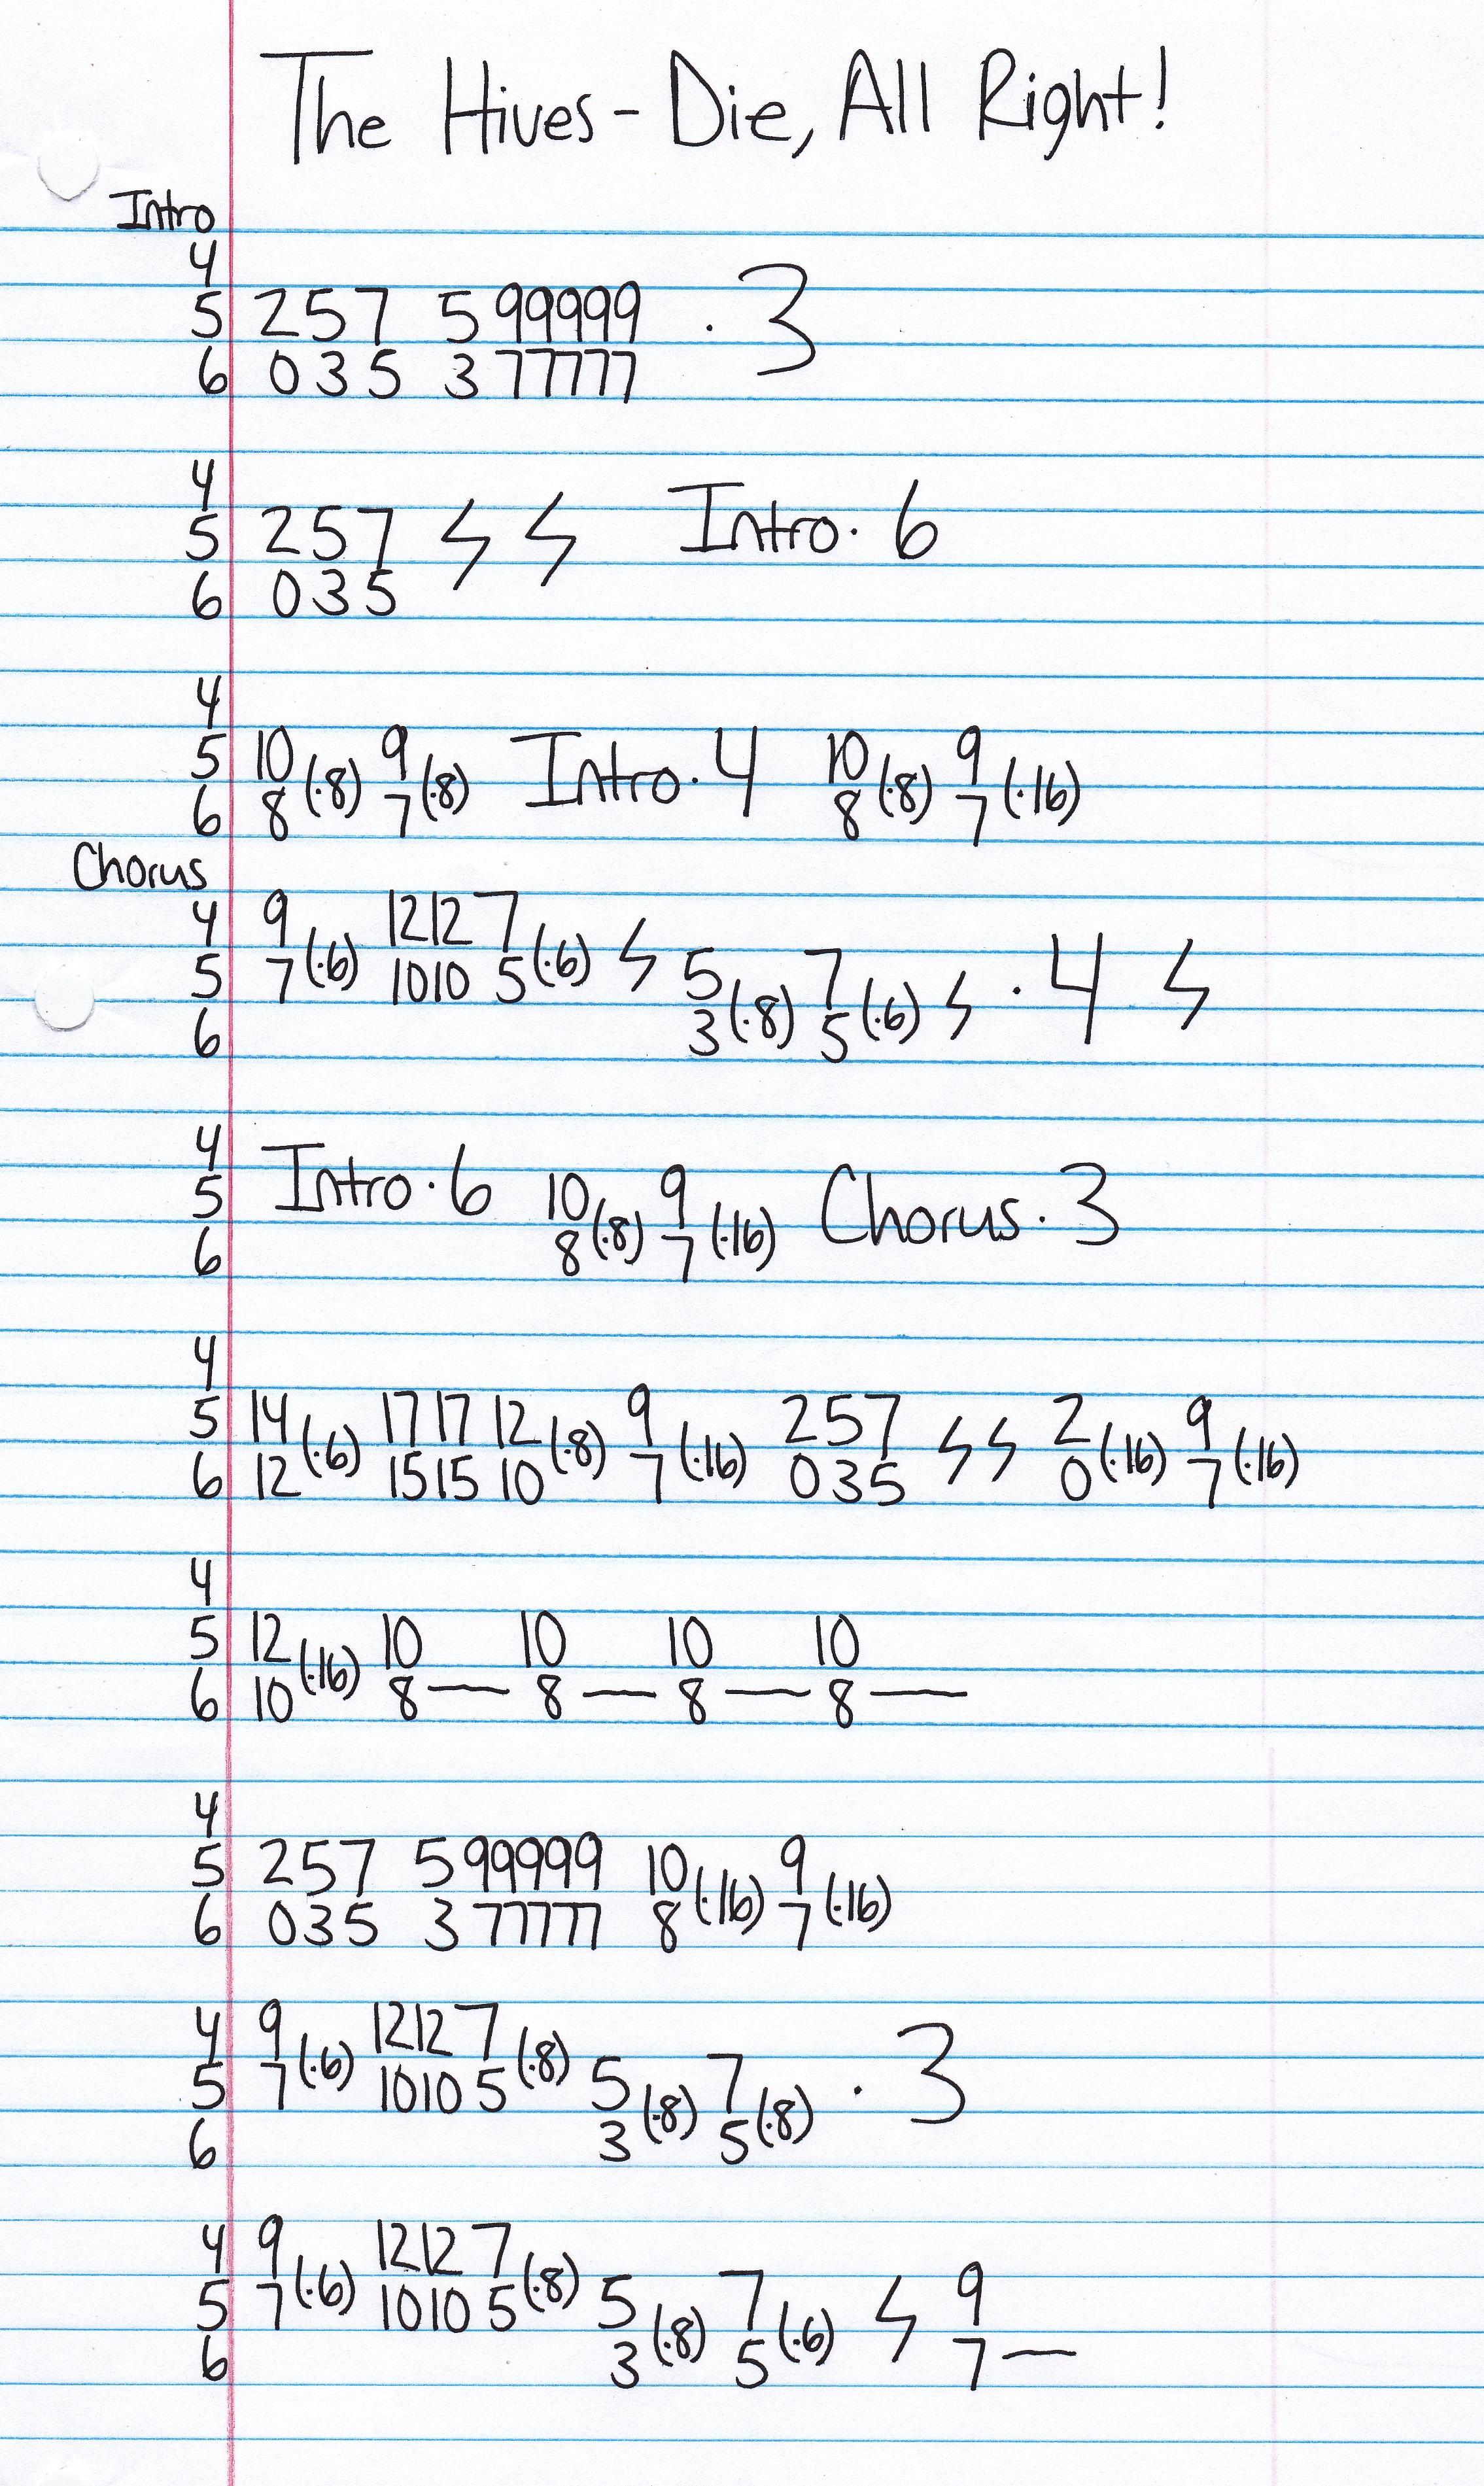 The Hives - Die, All Right!
Intro
4
5 2 5 7 5 9 9 9 9 9 · 3
6 0 3 5 3 7 7 7 7 7
4
5 2 5 7 ϟ ϟ Intro · 6
6 0 3 5
4
5 10 (·8) 9 (·8) Intro · 4 10 (·8) 9 (·16)
6 8 7 8 7
Chorus
4 9 (·6) 12 12 7 (·6) ϟ
5 7 10 10 5 5 (·8) 7 (·6) ϟ · 4 ϟ
6 3 5
4
5 Intro · 6 10 (·8) 9 (·16) Chorus · 3
6 8 7
4
5 14 (·6) 17 17 12 (·8) 9 (·16) 2 5 7 ϟ ϟ 2 (·16) 9 (·16)
6 12 15 15 10 7 0 3 5 0 7
4
5 12 (·16) 10 10 10 10
6 10 8 — 8 — 8 — 8 —
4
5 2 5 7 5 9 9 9 9 9 10 (·16) 9 (·16)
6 0 3 5 3 7 7 7 7 7 8 7
4 9 (·6) 12 12 7 (·8)
5 7 10 10 5 5 (·8) 7 (·8) · 3
6 3 5
4 9 (·6) 12 12 7 (·8)
5 7 10 10 5 5 (·8) 7 (·6) ϟ 9
6 3 5 7 —